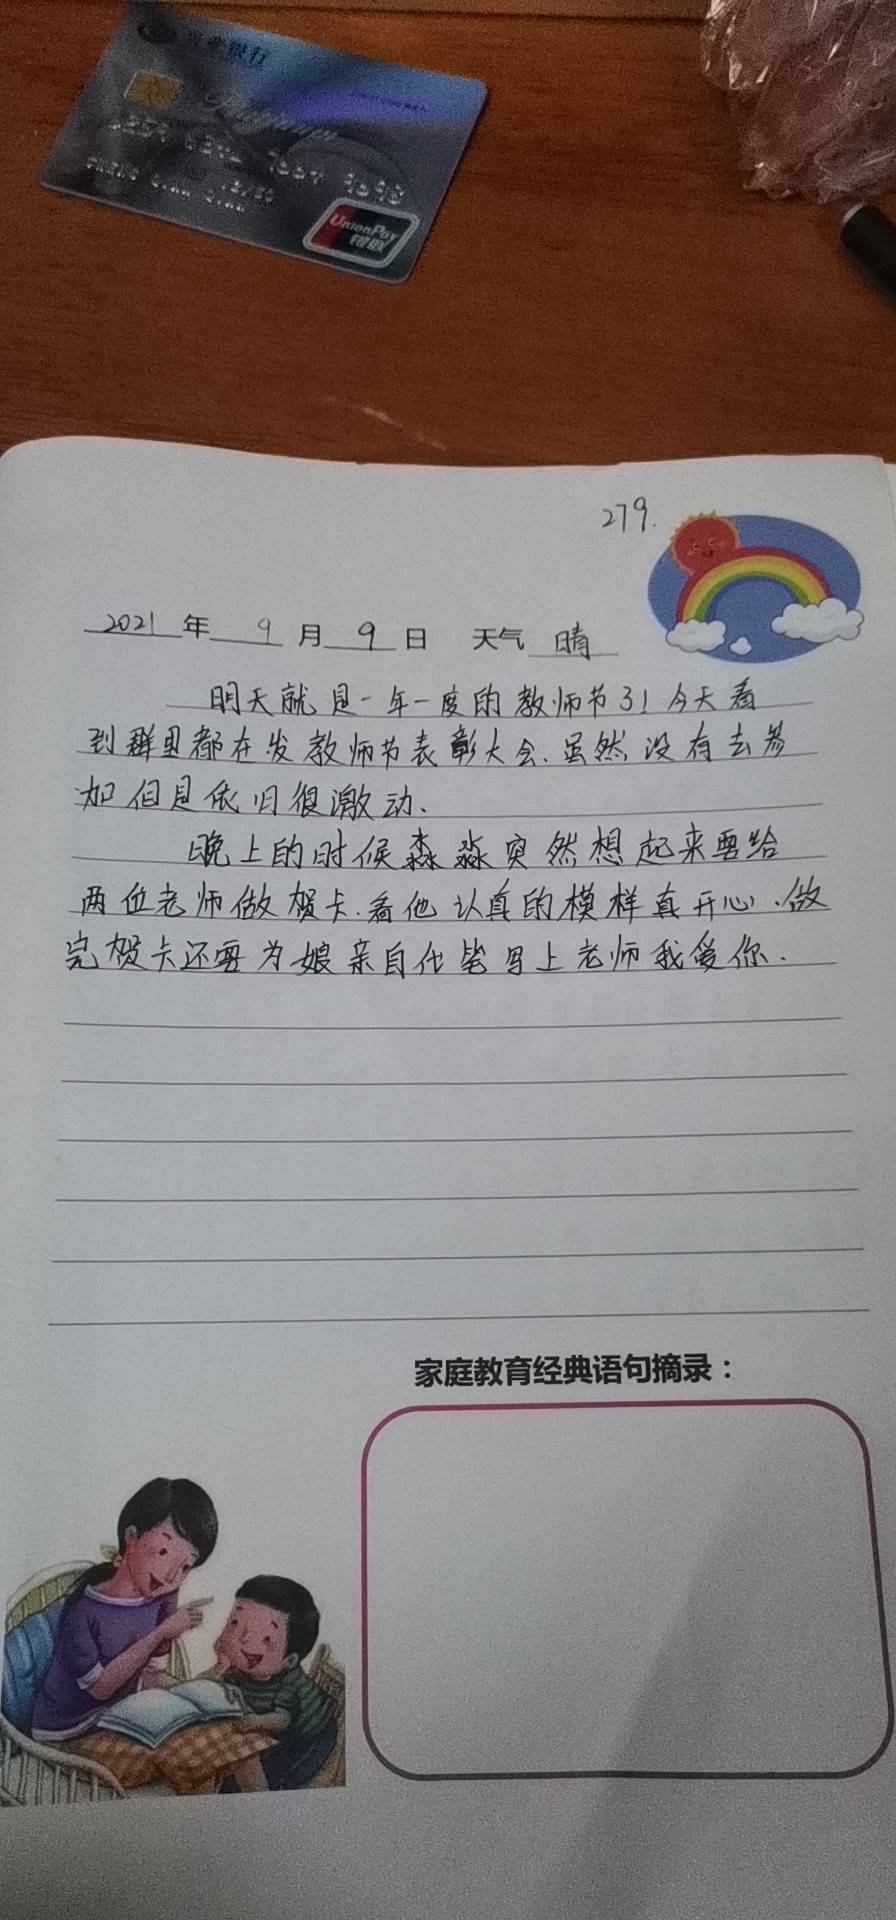 银行
UnionPay
银联
279.
2021年 9月 9日 天气 晴
明天就是一年一度的教师节了!今天看
到群里都在发教师节表彰大会.虽然没有去参
加但是依旧很激动.
晚上的时候森淼突然想起来要给
两位老师做贺卡.看他认真的模样真开心.做
完贺卡还要为娘亲自代笔写上老师我爱你.
家庭教育经典语句摘录：